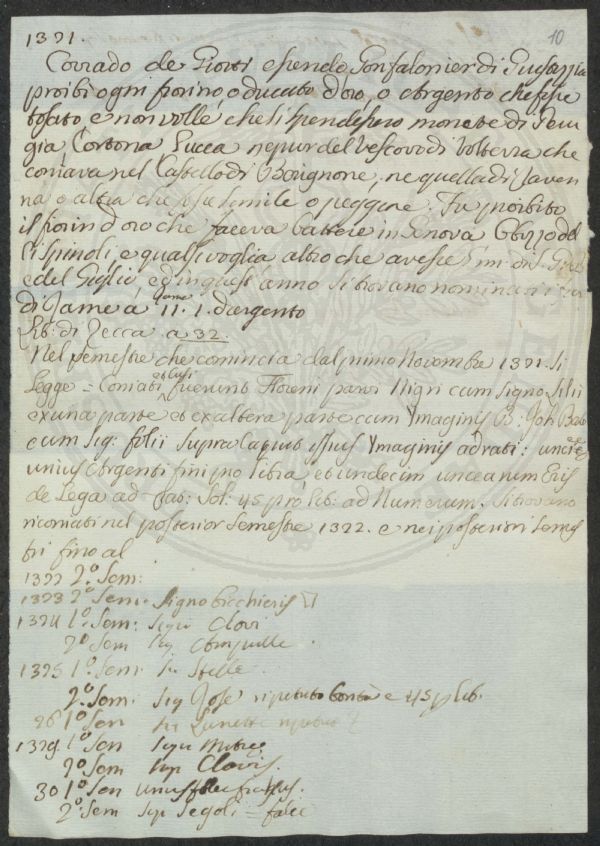 1321.
10
Corrado de Giotti essendo Gonfalonier di Giustizia
proibì ogni fiorino o ducato d'oro, o Argento che fosse
tosato e non volle che si spendessero monete di Peru
gia Cortona Lucca nepur del Vescovo di Volterra che
coniava nel Castello di Berignone, ne quella di Raven
na o altra che fosse simile o peggiore. Fu proibito
il fiorin d'oro che faceva battere in Genova Obizzo del
li Spinoli e qualsivoglia altro che avesse
e del Giglio, ed in quest'anno si trovano nominati i
di Rame a 11. 1. d'argento
Lib: di Zecca a 32.
Nel semestre che comincia dal primo Novembre 1321. si
Legge = Coniati et cusi fuerunt Floreni parvi Nigri cum signo Lilii
ex una parte et ex altera parte cum Ymaginis B: Joh
cum Sig: folii supra Caput ipsius Ymaginis ad rati: uncie
unius Argenti fini pro libra, et undecim uncearum Eris
de Lega ad Sol: 45 pro lib: ad Numerum. Si trovano
riconiati nel posterior semestre 1322. e nei posteriori semes
tri fino al
1322 2.º Sem:
1323 2º Sem: Signo Bicchieris
1324 1º Sem: Signi Clavi
2º Sem Sig
1325 1º Sem: Sig Stelle
2.º Sem: Sig Rose ripetuto e 45 p lib.
26 1º Sem Sig Lunette
1329 1º Sem Sign Mitre
2º Sem sig Clavis.
30 1º Sem unius
2º: Sem Sig Segoli = falce